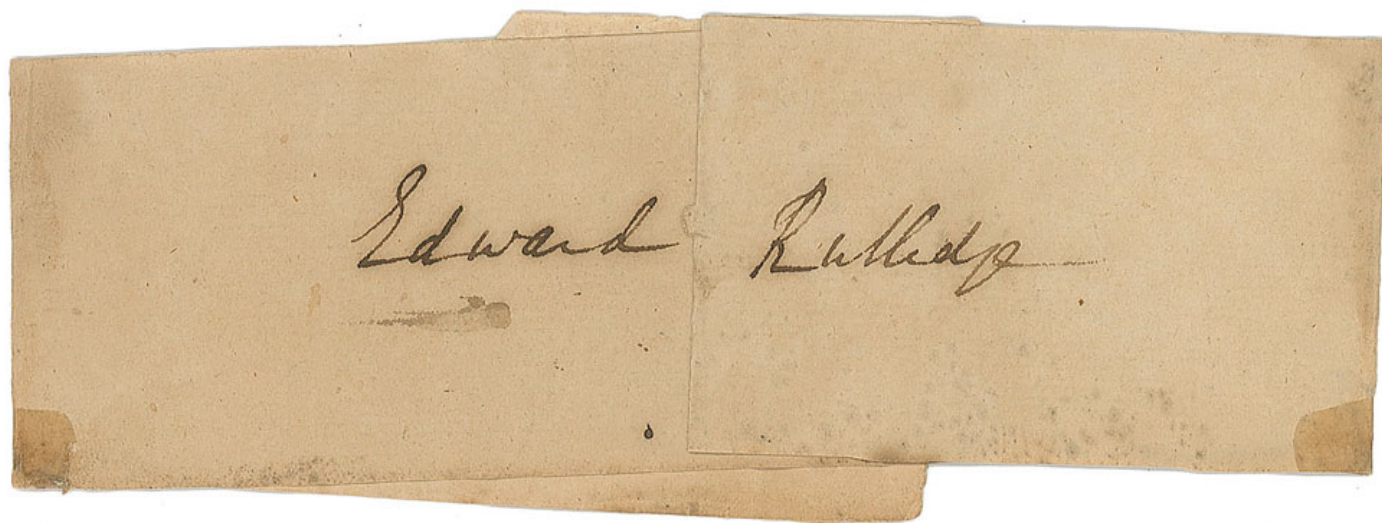 Edward Rutledge